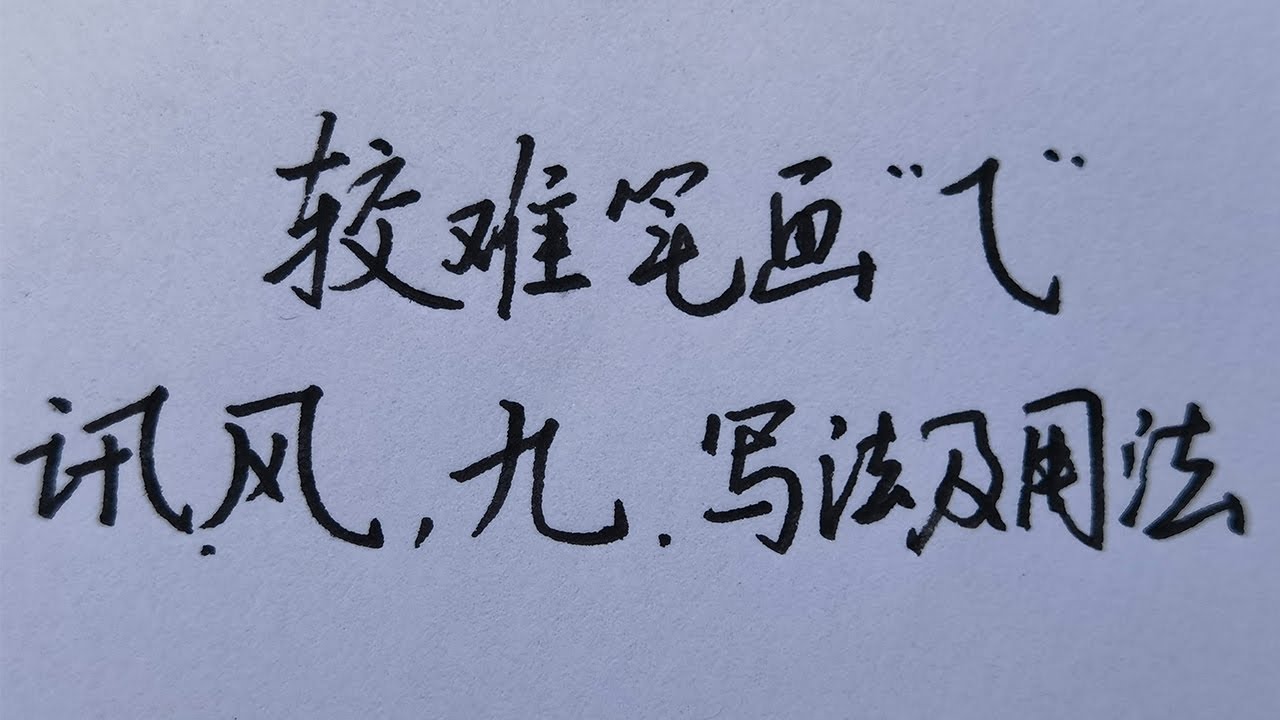 较难笔画"⺄"
讯.风,九.写法及用法